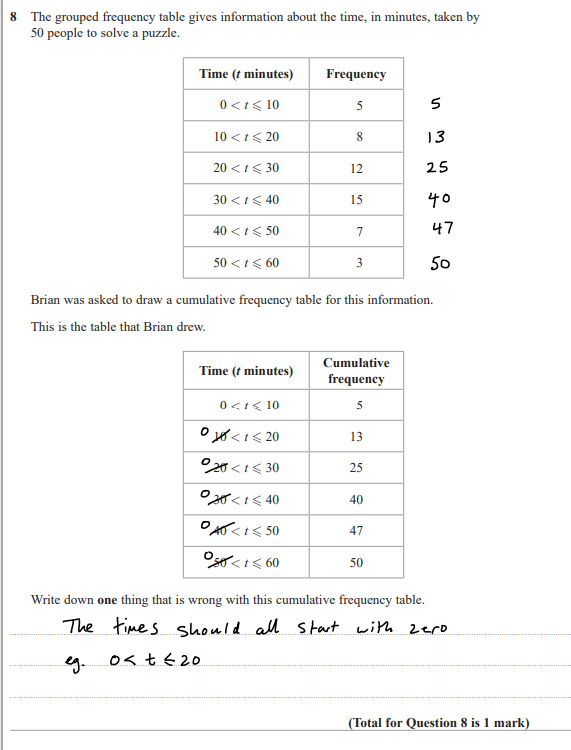 8 The grouped frequency table gives information about the time, in minutes, taken by
50 people to solve a puzzle.
Time (t minutes) Frequency
0 < t ⩽ 10 5 5
10 < t ⩽ 20 8 13
20 < t ⩽ 30 12 25
30 < t ⩽ 40 15 40
40 < t ⩽ 50 7 47
50 < t ⩽ 60 3 50
Brian was asked to draw a cumulative frequency table for this information.
This is the table that Brian drew.
Time (t minutes) Cumulative
frequency
0 < t ⩽ 10 5
0 10 < t ⩽ 20 13
0 20 < t ⩽ 30 25
0 30 < t ⩽ 40 40
0 40 < t ⩽ 50 47
0 50 < t ⩽ 60 50
Write down one thing that is wrong with this cumulative frequency table.
The times should all start with zero
eg. 0 < t ⩽ 20
(Total for Question 8 is 1 mark)